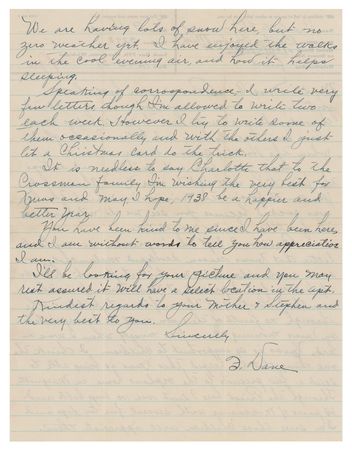 We are having lots of snow here, but no
zero weather yet. I have enjoyed the walks
in the cool evening air, and how it helps
sleeping.
Speaking of corrospondence, I write very
few letters though I'm allowed to write two
each week. However I try to write some of
them occassionally and with the others I just
let a Christmas card do the trick.
It is needless to say Charlotte that to the
Crossman family I'm wishing the very best for
Xmas and may I hope, 1938 be a happier and
better year.
You have been kind to me since I have been here,
and I am without words to tell you how appreciative
I am.
I'll be looking for your picture and you may
rest assured it will have a select location in the apt.
Kindest regards to your Mother & Stephen and
the very best to you.
Sincerely